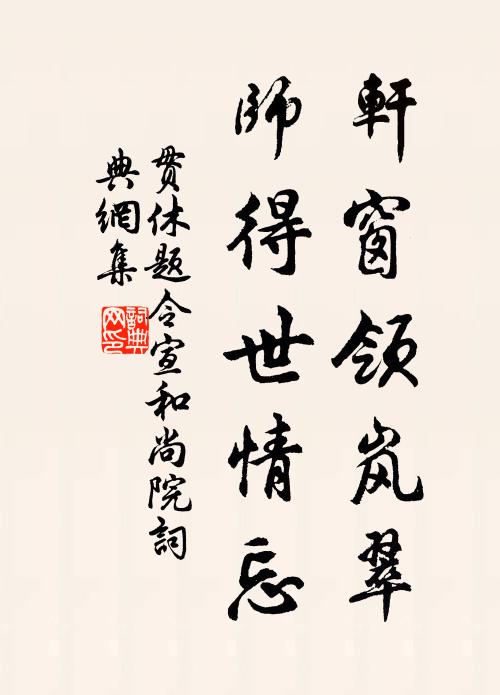 軒窗領岚翠
師得世情忘
贯休题令宣和尚院詞
典網集
詞典网印